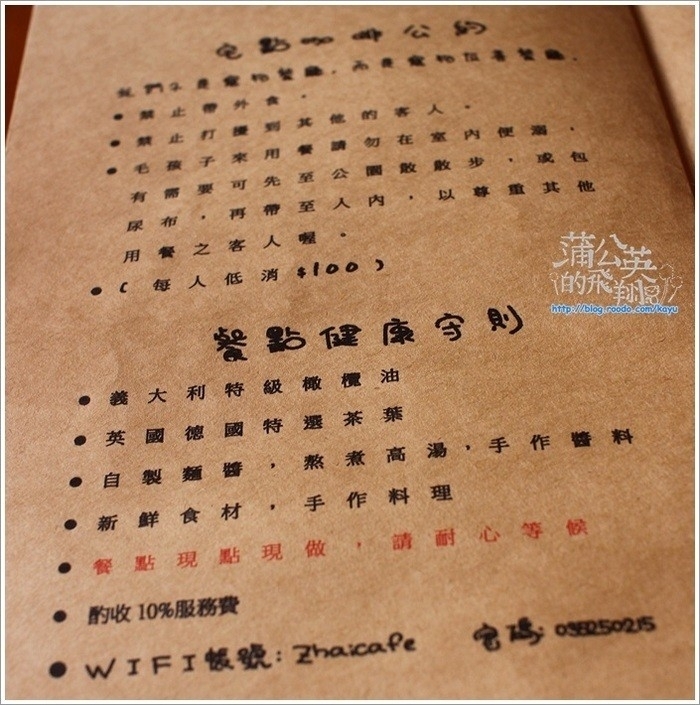 宅點咖啡公約
我們不是寵物餐廳，而是寵物友善餐廳．
• 禁止帶外食．
• 禁止打擾到其他的客人．
• 毛孩子來用餐請勿在室內便溺．
有需要可先至公園散散步，或包
尿布，再帶至人內，以尊重其他
用餐之客人喔。
• (每人低消$100)
蒲公英
的飛翔
http://blog.roodo.com/kayu
餐點健康守則
• 義大利特級橄欖油
• 英國德國特選茶葉
• 自製麵醬，熬煮高湯，手作醬料
• 新鮮食材，手作料理
• 餐點現點現做，請耐心等候
• 酌收10%服務費
• WIFI帳號：Zhaicafe 密碼：036250215